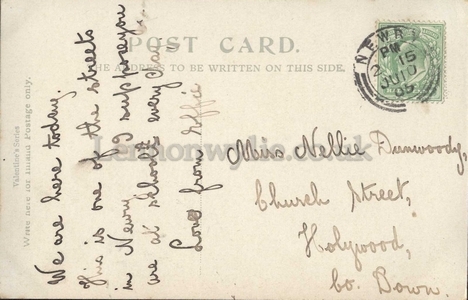 POST CARD.
THE ADDRESS TO BE WRITTEN ON THIS SIDE.
Valentine's Series
Write here for Inland Postage only.
We are here today.
This is one of the streets
in Newry. I suppose you
are at school every day
Love from Effie
NEWRY
PM
2 15
JU 10
05
Miss Nellie Dunwoody,
Church Street,
Holywood,
Co. Down.
Lennonwylie.co.uk